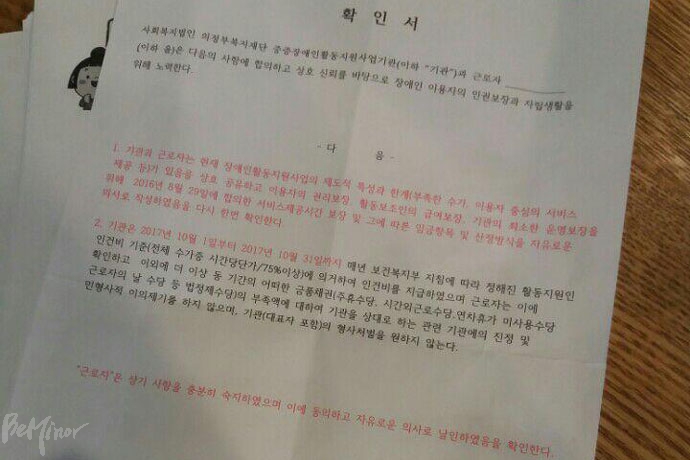 확 인 서
사회복지법인 의정부복지재단 중증장애인활동지원사업기관(이하 "기관")과 근로자
(이하 을)은 다음의 사항에 합의하고 상호 신뢰를 바탕으로 장애인 이용자의 인권보장과 자립생활을
위해 노력한다.
- 다 음 -
1. 기관과 근로자는 현재 장애인활동지원사업의 제도적 특성과 한계(부족한 수가, 이용자 중심의 서비스
제공 등)가 있음을 상호 공유하고 이용자의 권리보장, 활동보조인의 급여보장, 기관의 최소한 운영보장을
위해 2016년 8월 29일에 합의한 서비스제공시간 보장 및 그에 따른 임금항목 및 산정방식을 자유로운
의사로 작성하였음을 다시 한번 확인한다.
2. 기관은 2017년 10월 1일부터 2017년 10월 31일까지 매년 보건복지부 지침에 따라 정해진 활동지원인
인건비 기준(전체 수가중 시간당단가/75%이상)에 의거하여 인건비를 지급하였으며 근로자는 이에
확인하고 이외에 더 이상 동 기간의 어떠한 금품채권(주휴수당, 시간외근로수당,연차휴가 미사용수당
근로자의 날 수당 등 법정제수당)의 부족액에 대하여 기관을 상대로 하는 관련 기관에의 진정 및
민형사적 이의제기를 하지 않으며, 기관(대표자 포함)의 형사처벌을 원하지 않는다.
"근로자"은 상기 사항을 충분히 숙지하였으며 이에 동의하고 자유로운 의사로 날인하였음을 확인한다.
BeMinor